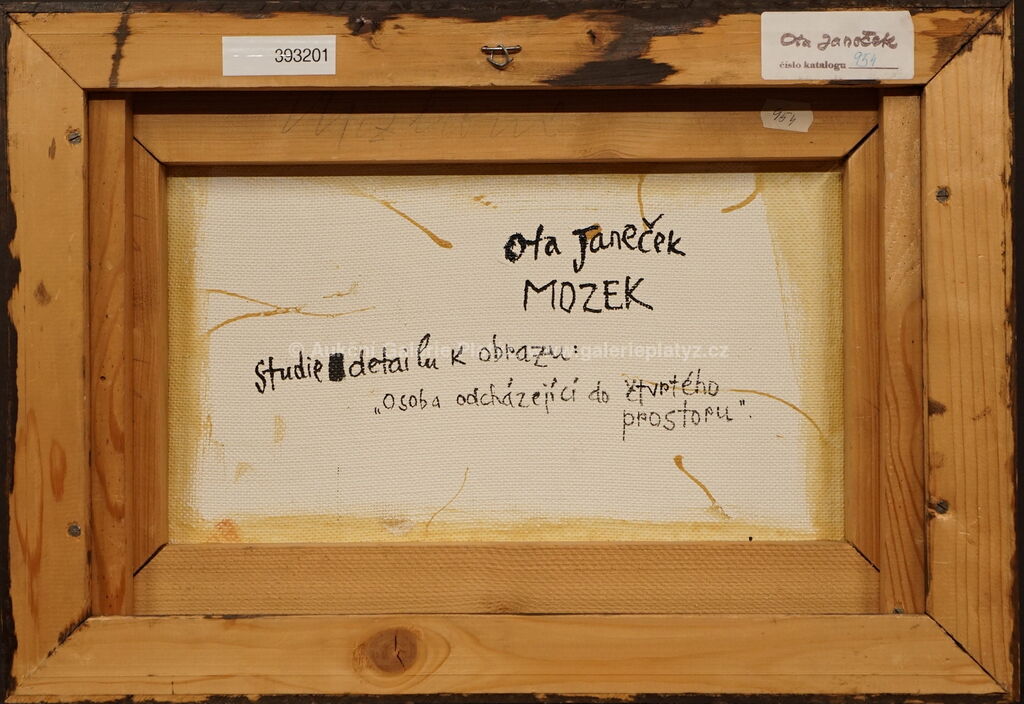 393201
Ota Janeček
číslo katalogu 954
954
Ota Janeček
MOZEK
Studie detailu k obrazu:
„Osoba odcházející do čtvrtého
prostoru".
galerieplatyz.cz